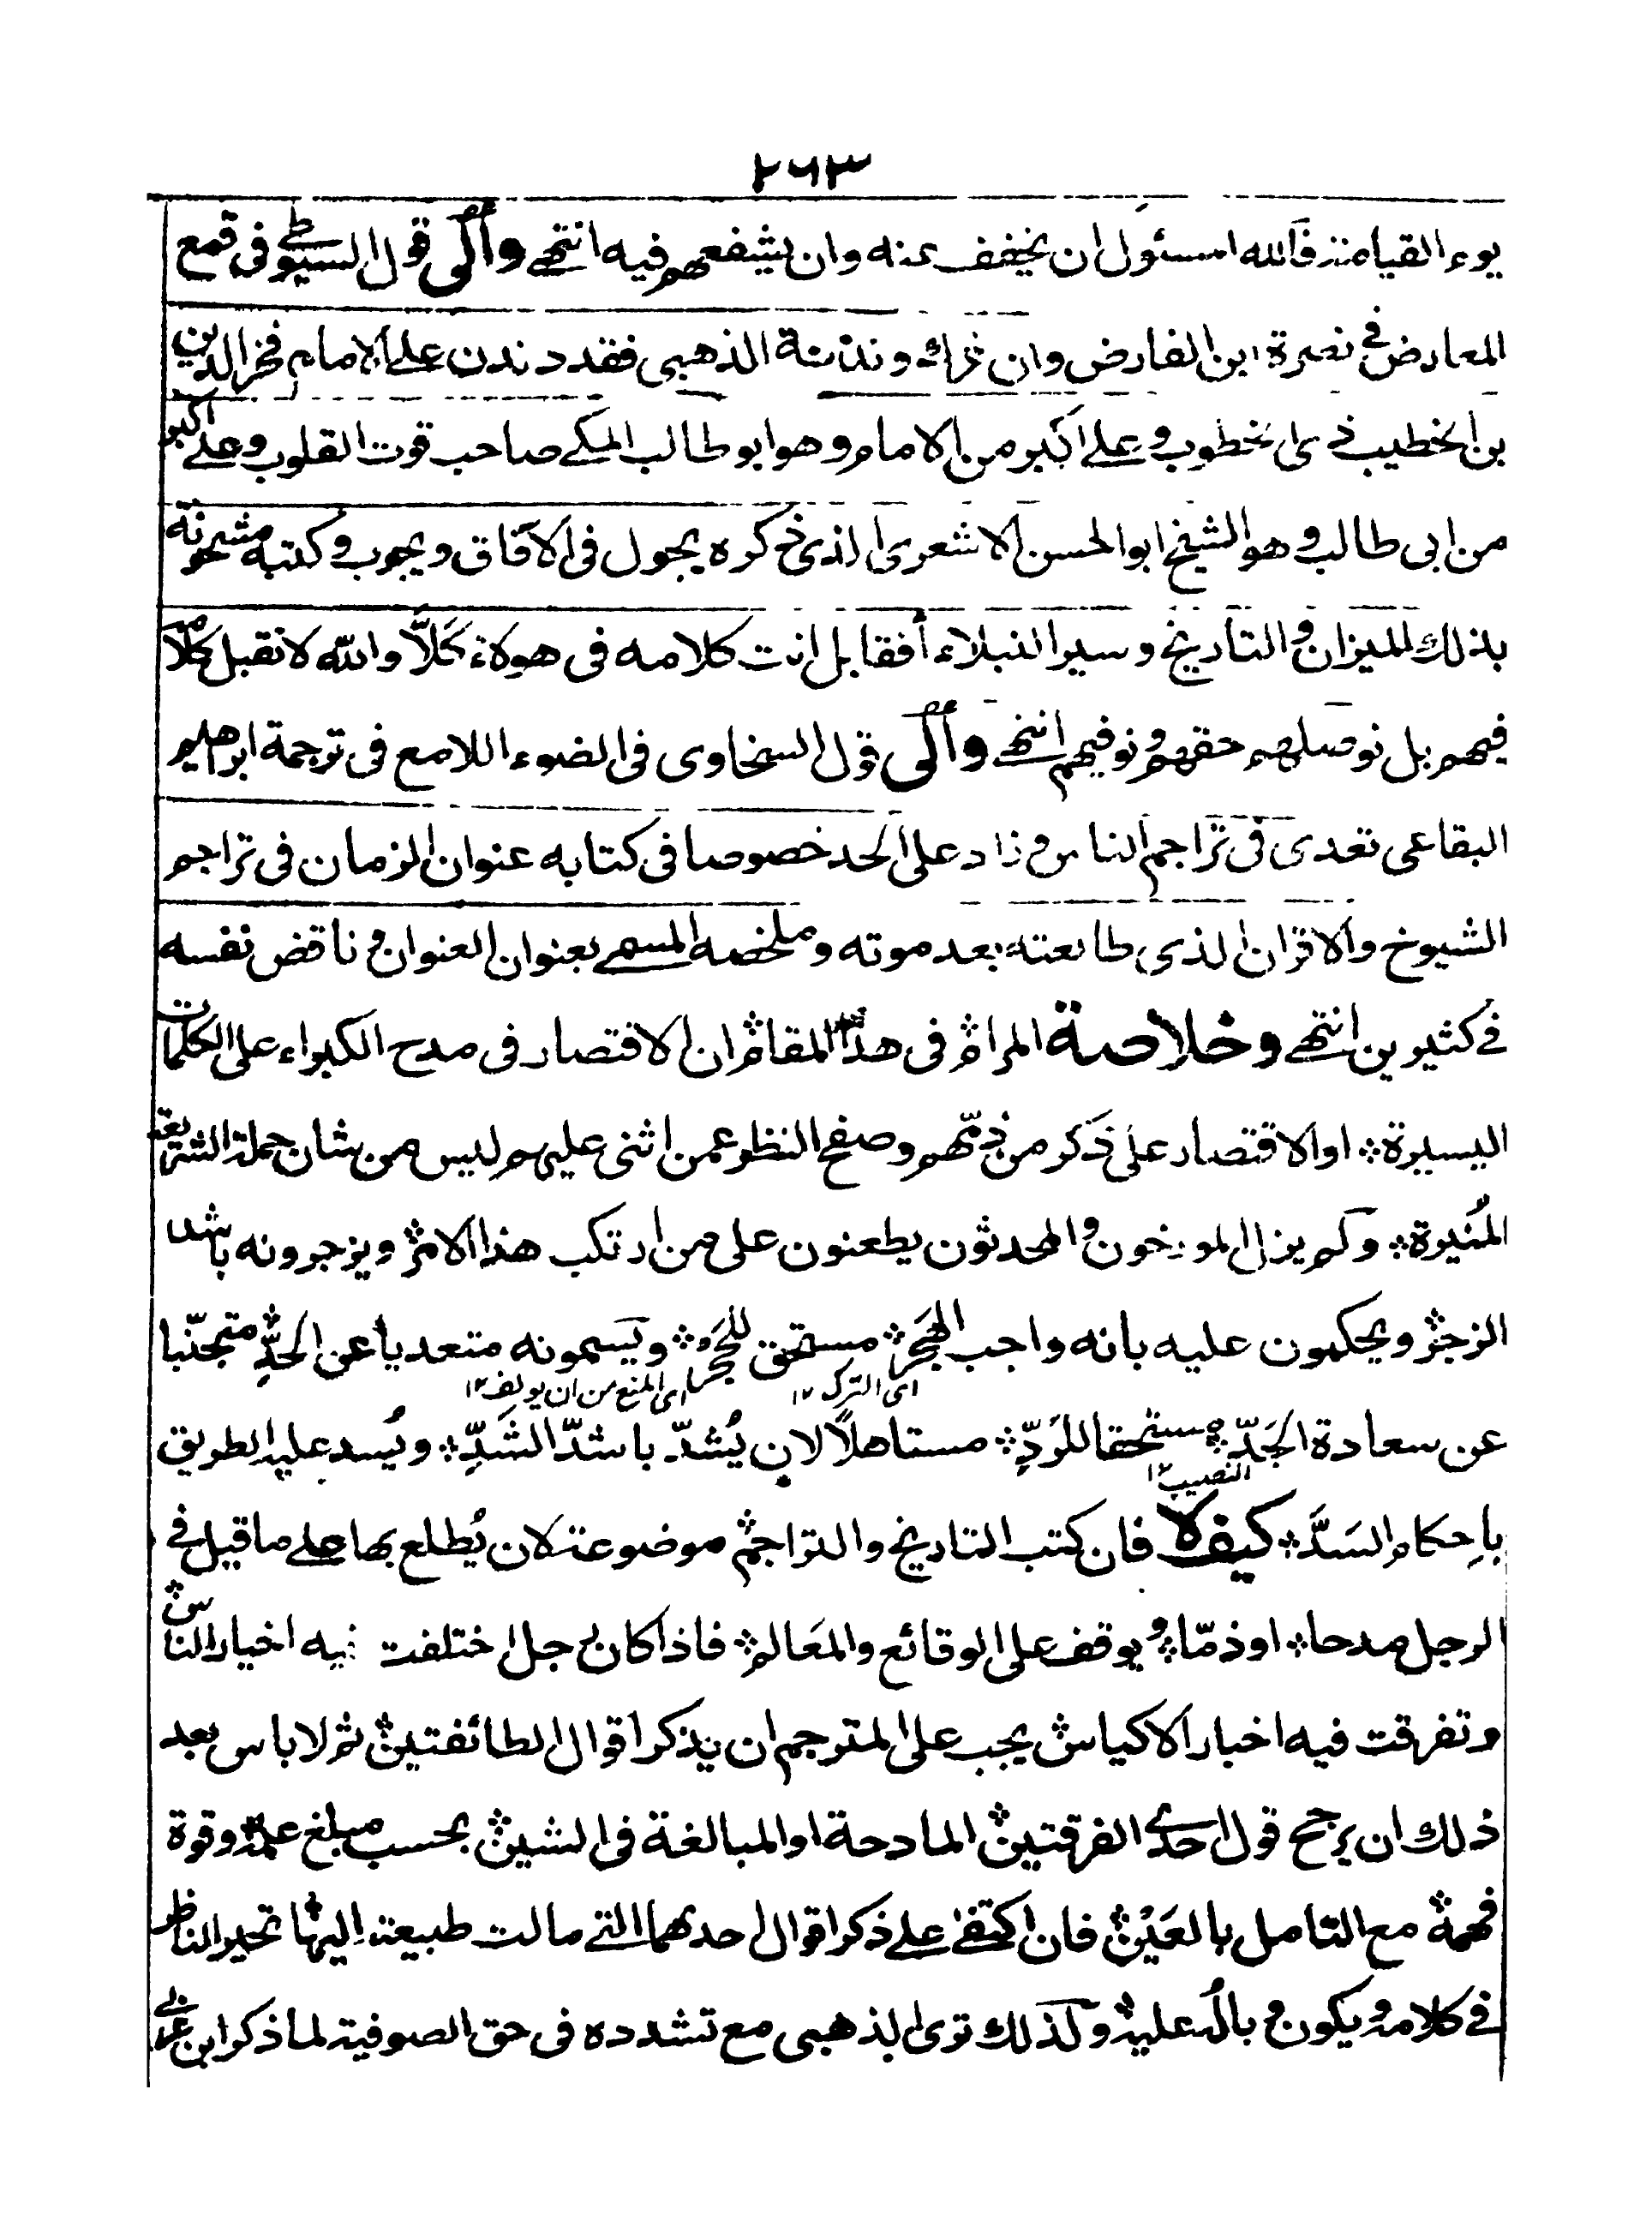 ٢٦٣
يوم القيامة فالله المسئول ان يخفف عنه وان يشفعهم فيه انتهى والى قول السيوطي فى قمع
المعارض في نصرة ابن الفارض وان غرك دندنة الذهبى فقد دندن على الامام فخر الدين
بن الخطيب ذى الخطوب وعلى اكبر من الامام وهو ابو طالب المكى صاحب قوت القلوب وعلى اكبر
من ابى طالب وهو الشيخ ابو الحسن الاشعرى الذى ذكره يجول فى الآفاق ويجوب وكتبه مشحونة
بذلك الميزان والتاريخ وسير النبلاء أفقابل انت كلامه فى هولاء كَلَّا والله لا نقبل كلامه
فيهم بل نوصلهم حقهم ونوفيهم انتهى والى قول السخاوى فى الضوء اللامع فى ترجمة ابراهيم
البقاعى تعدى فى تراجم الناس وزاد على الحد خصوصا فى كتابه عنوان الزمان فى تراجم
الشيوخ والاقران الذى طالعته بعد موته وملخصه المسمى بعنوان العنوان وناقض نفسه
في كثيرين انتهى وخلاصة المرام فى هذا المقام ان الاقتصار فى مدح الكبراء على الكلمات
اليسيرة او الاقتصار على ذكر من ذمّهم وصفح النظر عمن اثنى عليهم ليس من شان حملة الشريعة
المُنيرة ولم يزل المورخون والمحدثون يطعنون على من ارتكب هذا الامر ويزجرونه باشد
الزجر ويحكمون عليه بانه واجب الهَجر مستحق للحَجر ويسمونه متعديا عن الحدِّ متجنّبا
اى الترك ١٢ اى المنع من ان يولف ١٢
عن سعادة الجَدّ مستحقا للرَدِّ مستاهلًا لان يُشدّ باشدّ الشَدِّ ويُسد عليه الطريق
النصيب ١٢
باِحكام السَدَّ كيف لا فان كتب التاريخ والتراجم موضوعة لان يُطلع بها على ما قيل في
الرجل مدحا او ذمّا ويوقف على الوقائع والمَعالم فاذا كان رجل اختلفت فيه اخيار الناس
وتفرقت فيه اخبار الاكياس يجب على المترجم ان يذكر اقوال الطائفتين ثم لا باس بعد
ذلك ان يرجح قول احدى الفرقتين المادحة او المبالغة فى الشين بحسب مبلغ علمه وقوة
فهمه مع التامل بالعَيْن فان اكتفى على ذكر اقوال احدهما التى مالت طبيعته اليها تحير الناظر
في كلامه ويكون وبالُه عليه وكذلك ترى الذهبى مع تشدده فى حق الصوفية لما ذكر ابن عربى